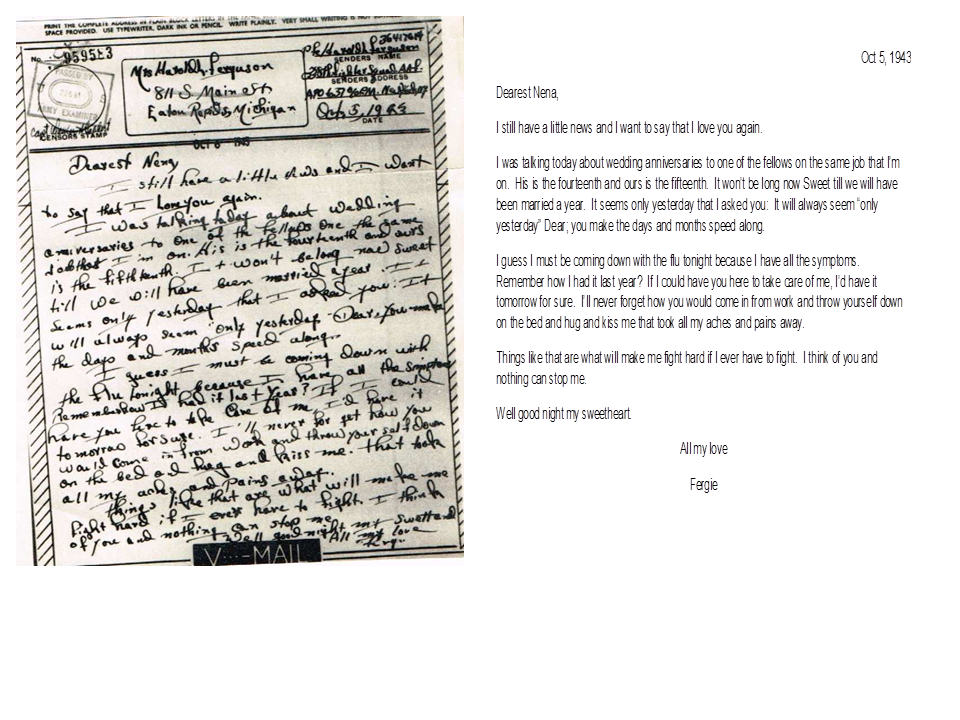 PRINT THE COMPLETE ADDRESS IN PLAIN BLOCK LETTERS IN THE
SPACE PROVIDED. USE TYPEWRITER, DARK INK OR PENCIL. WRITE PLAINLY. VERY SMALL WRITING IS NOT
No.
PASSED BY
ARMY EXAMINER
CENSORS STAMP
Mrs Harold L. Ferguson
811 S. Main St
Eaton Rapids, Michigan
Pfc Harold L. Ferguson 36417614
SENDERS NAME
SENDERS ADDRESS
Oct 5, 1943
DATE
OCT 6 1943
Dearest Nena,
I still have a little news and I want
to say that I love you again.
I was talking today about wedding
anniversaries to one of the fellows one the same
job that I'm on. His is the fourteenth and ours
is the fifteenth. It won't be long now sweet
till we will have been married a year. It
seems only yesterday that I asked you: It
will always seem "only yesterday" Dear, you make
the days and months speed along.
I guess I must be coming down with
the flu tonight because I have all the symptoms
Remember how I had it last year? If I could
have you here to take care of me, I'd have it
tomorrow for sure. I'll never forget how you
would come in from work and throw yourself down
on the bed and hug and kiss me. that took
all my aches and pains away.
things like that are what will make me
fight hard if I ever have to fight. I think
of you and nothing can stop me.
Well good night my sweetheart
All my love
V···-MAIL
Oct 5, 1943
Dearest Nena,
I still have a little news and I want to say that I love you again.
I was talking today about wedding anniversaries to one of the fellows on the same job that I'm
on. His is the fourteenth and ours is the fifteenth. It won't be long now Sweet till we will have
been married a year. It seems only yesterday that I asked you: It will always seem "only
yesterday" Dear; you make the days and months speed along.
I guess I must be coming down with the flu tonight because I have all the symptoms.
Remember how I had it last year? If I could have you here to take care of me, I'd have it
tomorrow for sure. I'll never forget how you would come in from work and throw yourself down
on the bed and hug and kiss me that took all my aches and pains away.
Things like that are what will make me fight hard if I ever have to fight. I think of you and
nothing can stop me.
Well good night my sweetheart.
All my love
Fergie